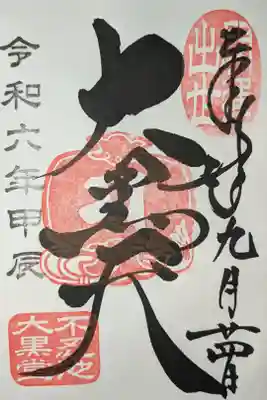 奉拝 九月
開運
出世
大黒天
令和六年甲辰
不忍池
大黒堂